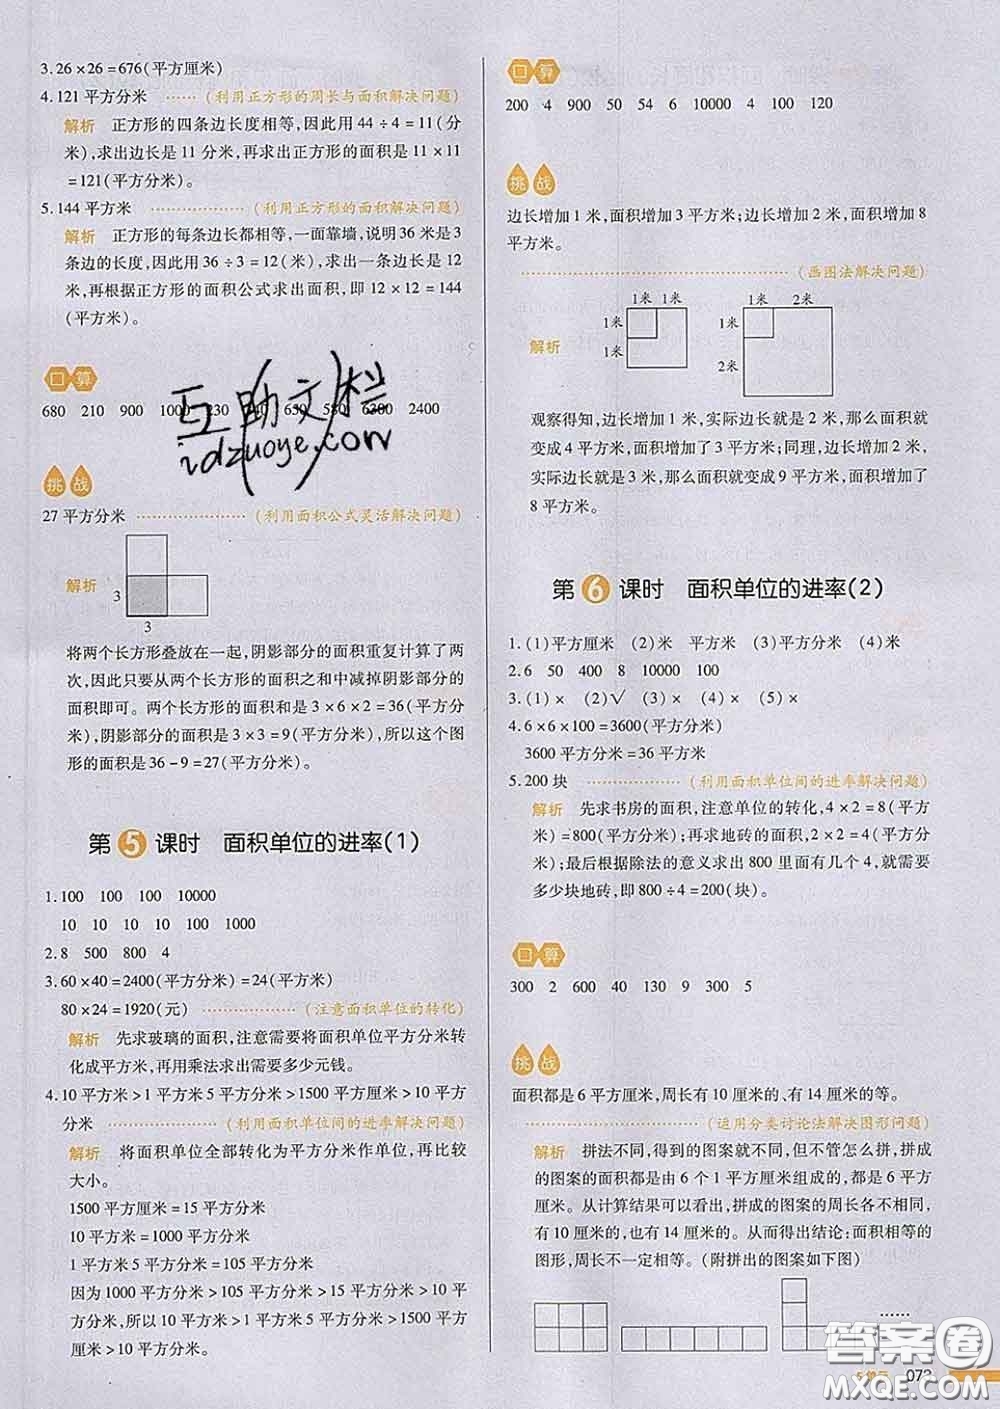 3. 26×26=676(平方厘米)
4. 121 平方分米 ……(利用正方形的周长与面积解决问题)
解析 正方形的四条边长度相等,因此用 44÷4=11(分
米),求出边长是 11 分米,再求出正方形的面积是 11×11
=121(平方分米)。
5. 144 平方米 ……(利用正方形的面积解决问题)
解析 正方形的每条边长都相等,一面靠墙,说明 36 米是 3
条边的长度,因此用 36÷3=12(米),求出一条边长是 12
米,再根据正方形的面积公式求出面积,即 12×12=144
(平方米)。
口算
680 210 900 1000 230 40 630 580 6300 2400
挑战
27 平方分米 ……(利用面积公式灵活解决问题)
解析
3
3
将两个长方形叠放在一起,阴影部分的面积重复计算了两
次,因此只要从两个长方形的面积之和中减掉阴影部分的
面积即可。两个长方形的面积和是 3×6×2=36(平方分
米),阴影部分的面积是 3×3=9(平方分米),所以这个图
形的面积是 36-9=27(平方分米)。
第 5 课时 面积单位的进率(1)
1. 100 100 100 10000
10 10 10 100 100 1000
2. 8 500 800 4
3. 60×40=2400(平方分米)=24(平方米)
80×24=1920(元) ……(注意面积单位的转化)
解析 先求玻璃的面积,注意需要将面积单位平方分米转
化成平方米,再用乘法求出需要多少元钱。
4. 10 平方米>1 平方米 5 平方分米>1500 平方厘米>10 平方
分米 ……(利用面积单位间的进率解决问题)
解析 将面积单位全部转化为平方分米作单位,再比较
大小。
1500 平方厘米=15 平方分米
10 平方米=1000 平方分米
1 平方米 5 平方分米=105 平方分米
因为 1000 平方分米>105 平方分米>15 平方分米>10 平
方分米,所以 10 平方米>1 平方米 5 平方分米>1500 平方
厘米>10 平方分米。
口算
200 4 900 50 54 6 10000 4 100 120
挑战
边长增加 1 米,面积增加 3 平方米;边长增加 2 米,面积增加 8
平方米。
……(画图法解决问题)
1米 1米 1米 2米
1米 1米
解析
1米 2米
观察得知,边长增加 1 米,实际边长就是 2 米,那么面积就
变成 4 平方米,面积增加了 3 平方米;同理,边长增加 2 米,
实际边长就是 3 米,那么面积就变成 9 平方米,面积增加了
8 平方米。
第 6 课时 面积单位的进率(2)
1. (1)平方厘米 (2)米 平方米 (3)平方分米 (4)米
2. 6 50 400 8 10000 100
3. (1)× (2)√ (3)× (4)× (5)×
4. 6×6×100=3600(平方分米)
3600 平方分米=36 平方米
5. 200 块 ……(利用面积单位间的进率解决问题)
解析 先求书房的面积,注意单位的转化,4×2=8(平方
米)=800(平方分米);再求地砖的面积,2×2=4(平方分
米);最后根据除法的意义求出 800 里面有几个 4,就需要
多少块地砖,即 800÷4=200(块)。
口算
300 2 600 40 130 9 300 5
挑战
面积都是 6 平方厘米,周长有 10 厘米的、有 14 厘米的等。
……(运用分类讨论法解决图形问题)
解析 拼法不同,得到的图案就不同,但不管怎么拼,拼成
的图案的面积都是由 6 个 1 平方厘米组成的,都是 6 平方
厘米。从计算结果可以看出,拼成的图案的周长各不相同,
有 10 厘米的,也有 14 厘米的。从而得出结论:面积相等的
图形,周长不一定相等。(附拼出的图案如下图)
……
互助文档
idzuoye.com
答案圈
MXQE.COM